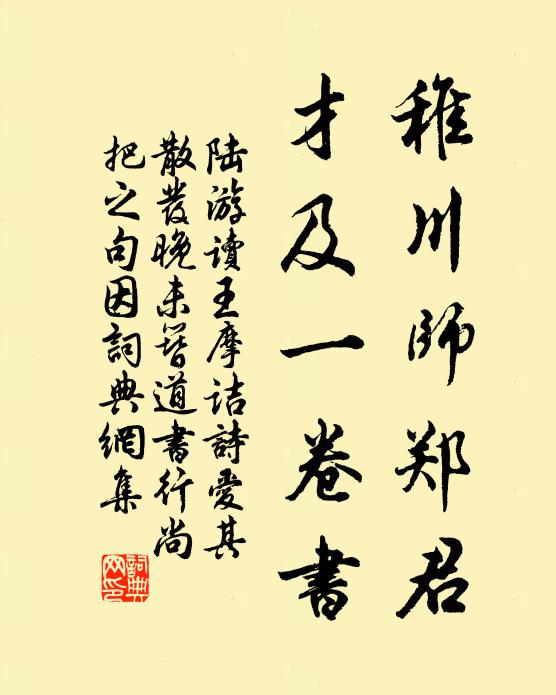 稚川师郑君
才及一卷書
陆游讀王摩诘詩愛其
散发晚未簪道書行尚
把之句因詞典網集
詞典网印